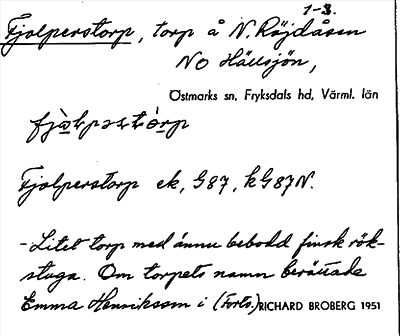 1-3.
Fjolperstorp, torp å N. Röjdåsen
NO Hällsjön,
Östmarks sn, Fryksdals hd, Värml. län
Fjolperstorp ek, G87, kG87N.
- Litet torp med ännu bebodd finsk rök-
stuga. Om torpets namn berättade
Emma Henriksson i (forts.) RICHARD BROBERG 1951